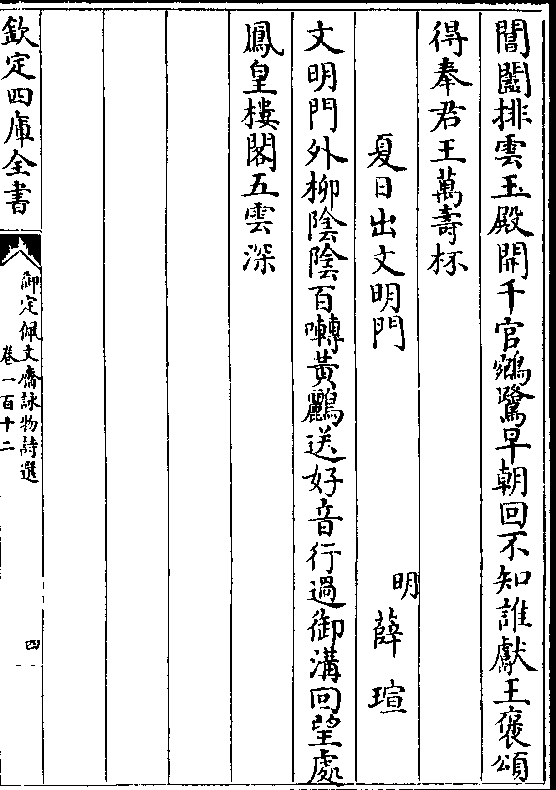 閶闔排雲玉殿開千官鵷鷺早朝回不知誰獻王褒頌
得奉君王萬壽杯
夏日出文明門
明薛瑄
文明門外柳陰陰百囀黃鸝送好音行過御溝回望處
鳳皇樓閣五雲深
欽定四庫全書
御定佩文齋詠物詩選
卷一百十二
四